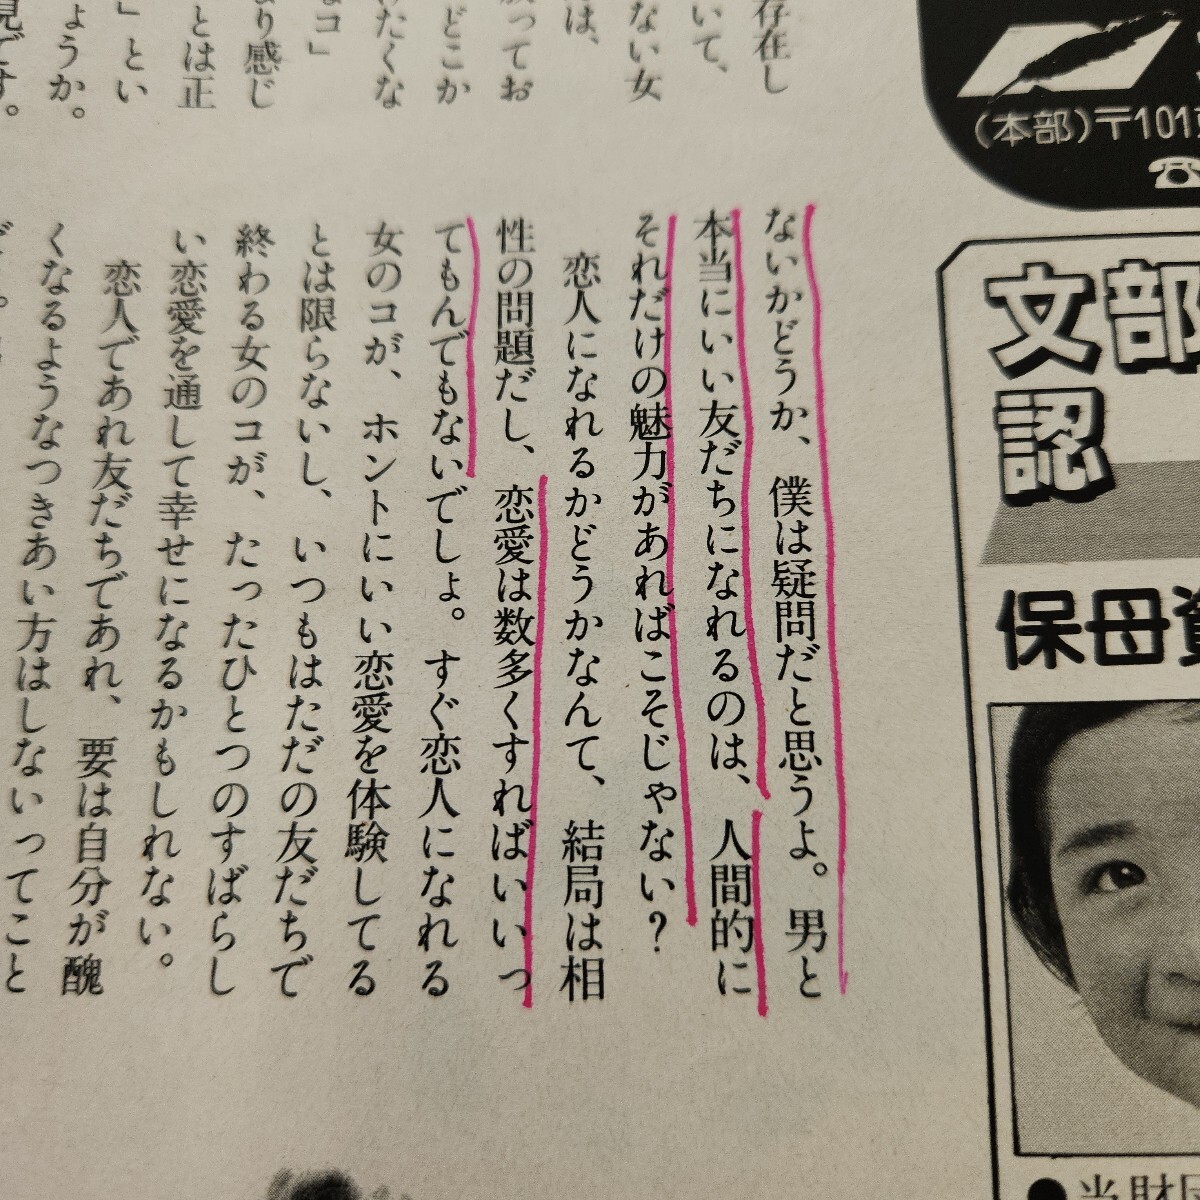 存在し
いて、
ない女
は、
放ってお
どこか
たくな
なコ」
より感じ
とは正
」とい
ょうか。
見です。
ないかどうか、僕は疑問だと思うよ。男と
本当にいい友だちになれるのは、人間的に
それだけの魅力があればこそじゃない?
恋人になれるかどうかなんて、結局は相
性の問題だし、恋愛は数多くすればいいっ
てもんでもないでしょ。すぐ恋人になれる
女のコが、ホントにいい恋愛を体験してる
とは限らないし、いつもはただの友だちで
終わる女のコが、たったひとつのすばらし
い恋愛を通して幸せになるかもしれない。
恋人であれ友だちであれ、要は自分が醜
くなるようなつきあい方はしないってこと
(本部)〒101
文部
認
保母資